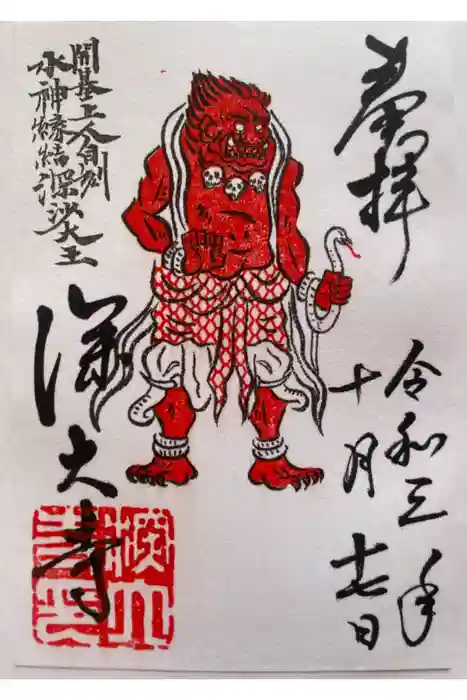 奉拝
令和三年
十月十七日
開基上人自刻
水神縁結深沙大王
深大寺